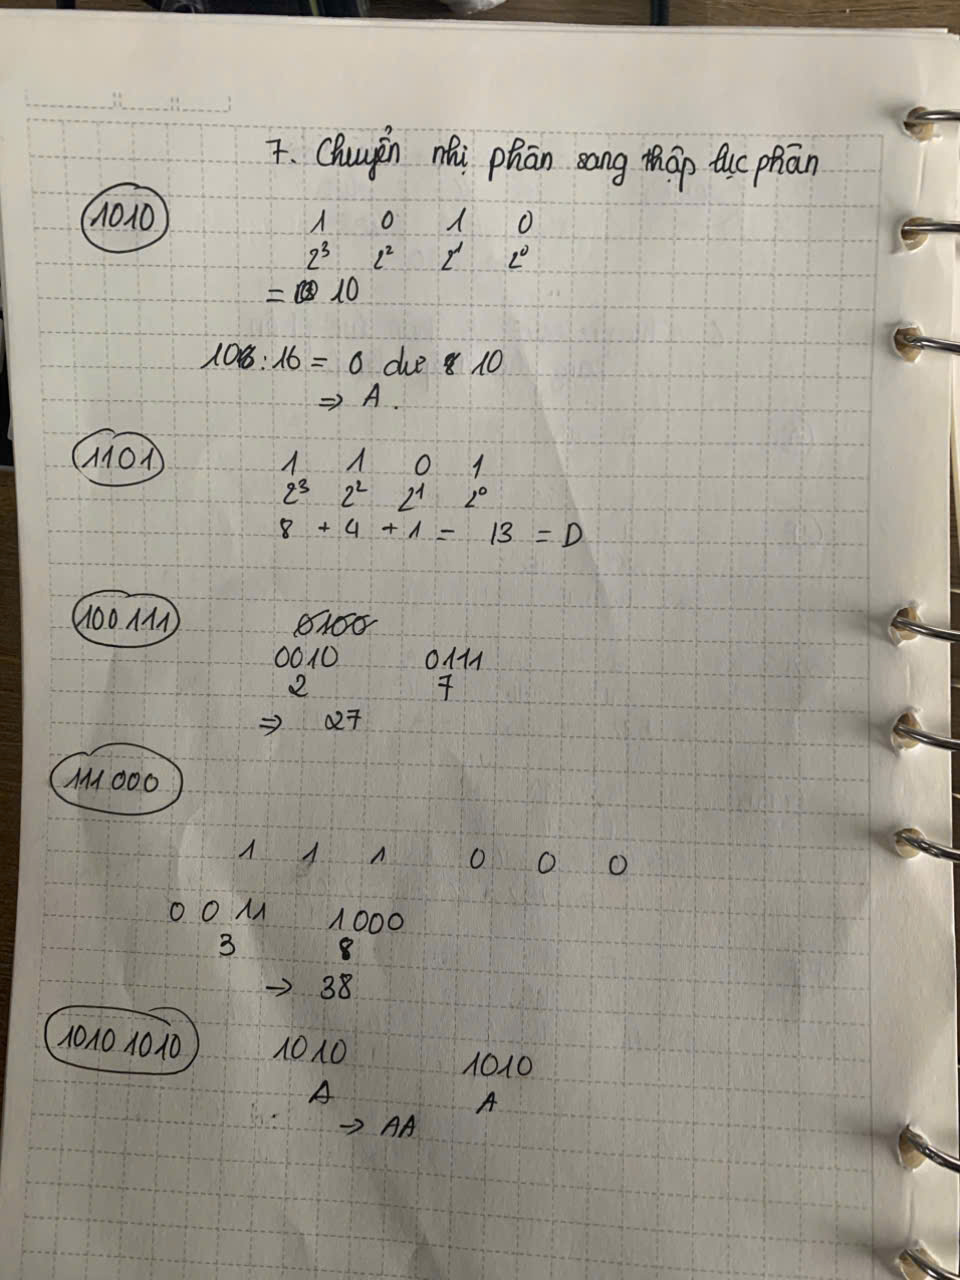 7. Chuyển nhị phân sang thập lục phân
1010
1 0 1 0
2³ 2² 2¹ 2⁰
= 10
10 : 16 = 0 dư 10
⇒ A.
1101
1 1 0 1
2³ 2² 2¹ 2⁰
8 + 4 + 1 = 13 = D
100111
0100
0010 0111
2 7
⇒ 27
111000
1 1 1 0 0 0
0011 1000
3 8
→ 38
1010 1010
1010 1010
A A
→ AA